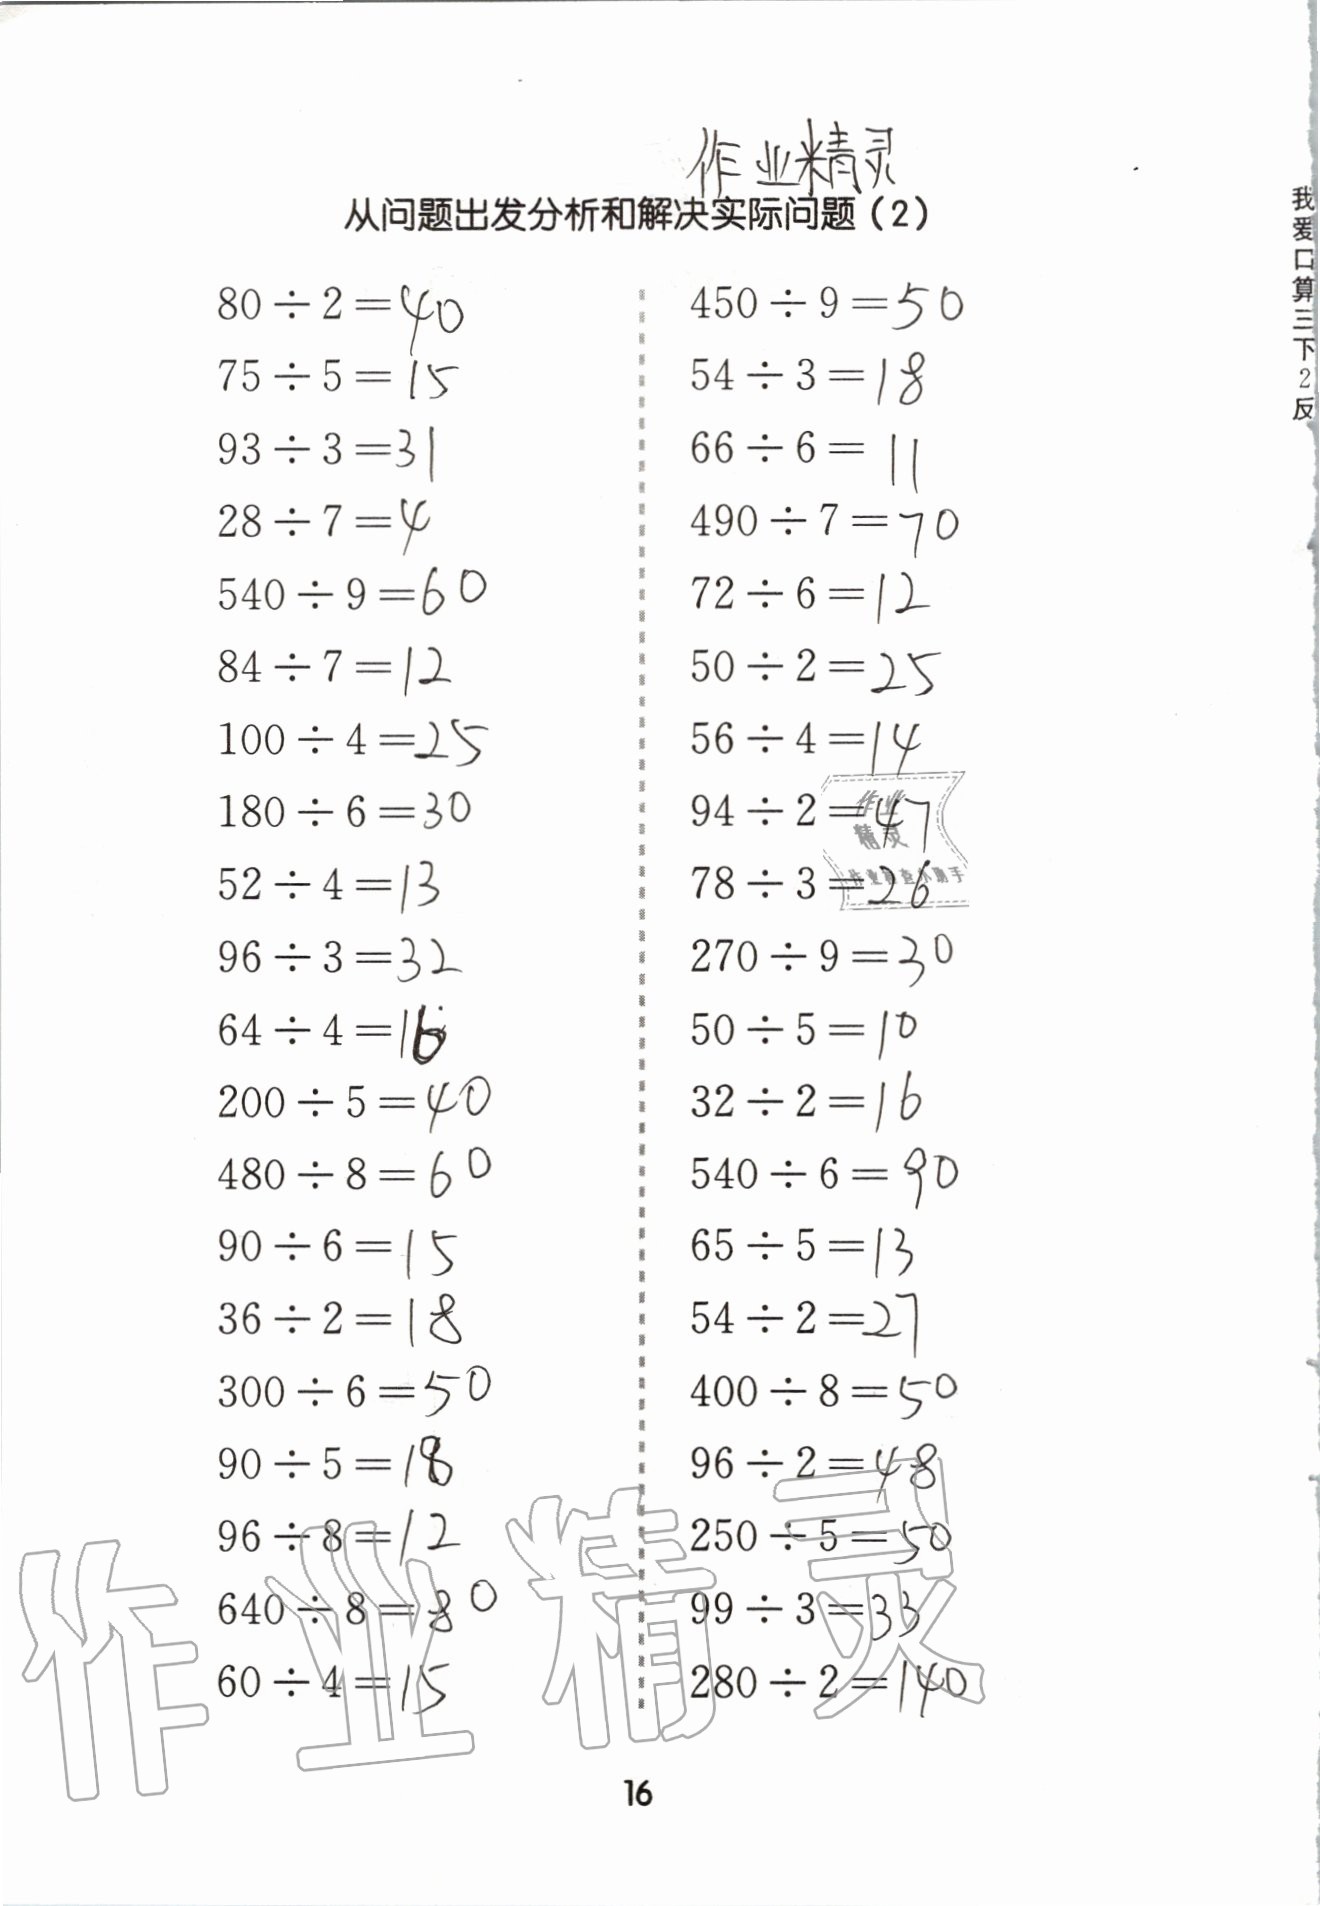 作业精灵
从问题出发分析和解决实际问题（2）
80÷2=40
75÷5=15
93÷3=31
28÷7=4
540÷9=60
84÷7=12
100÷4=25
180÷6=30
52÷4=13
96÷3=32
64÷4=16
200÷5=40
480÷8=60
90÷6=15
36÷2=18
300÷6=50
90÷5=18
96÷8=12
640÷8=80
60÷4=15
450÷9=50
54÷3=18
66÷6=11
490÷7=70
72÷6=12
50÷2=25
56÷4=14
94÷2=47
78÷3=26
270÷9=30
50÷5=10
32÷2=16
540÷6=90
65÷5=13
54÷2=27
400÷8=50
96÷2=48
250÷5=50
99÷3=33
280÷2=140
作业
精灵
作业精灵
16
我爱口算三下2反